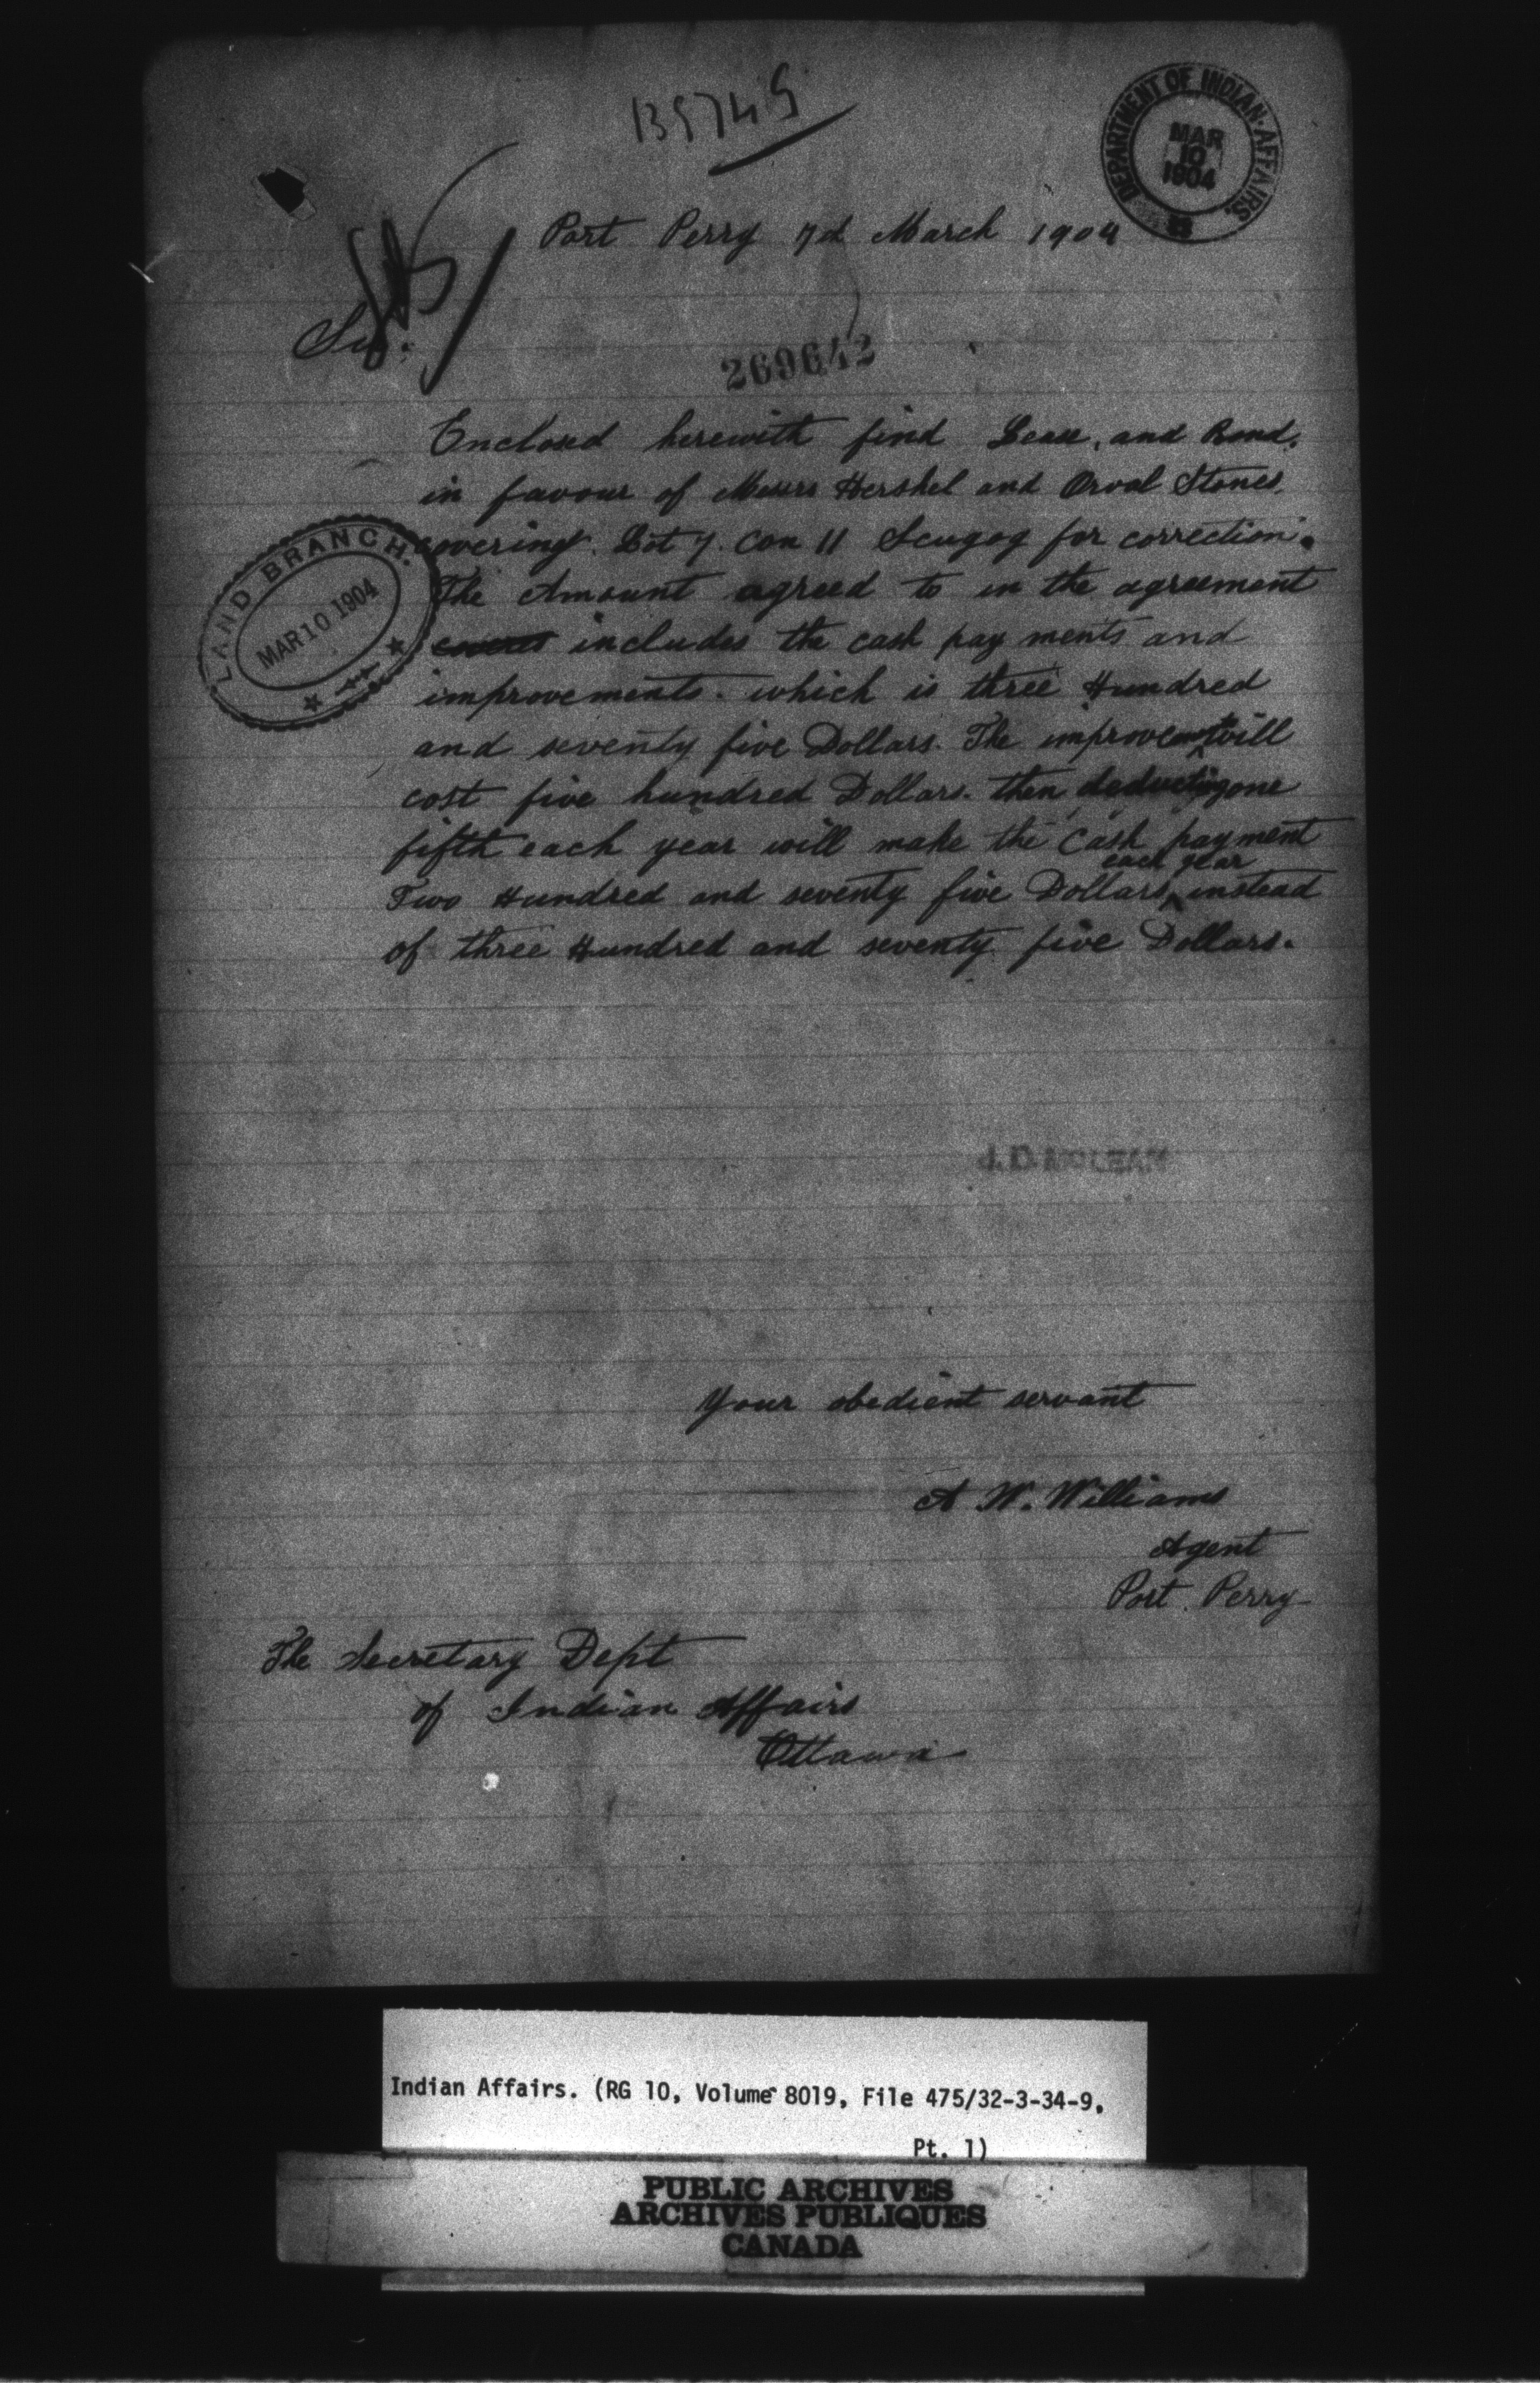 135745
DEPARTMENT OF INDIAN AFFAIRS.
MAR
10
1904
Port Perry 7d March 1904
Sir:
269642
Enclosed herewith find Lease, and Bond,
in favour of Messrs Hershel and Orval Stones,
covering. Lot 7. Con 11 Scugog for correction.
LAND BRANCH.
MAR 10 1904
The Amount agreed to in the agreement
includes the cash pay ments and
improvements. which is three Hundred
and seventy five Dollars. The improvements will
cost five hundred Dollars. then deducting one
fifth each year will make the Cash payment
Two Hundred and seventy five Dollars each year instead
of three Hundred and seventy five Dollars.
J. D. McLEAN
Your obedient servant
A W. Williams
Agent
Port Perry
The Secretary Dept
of Indian Affairs
Ottawa
Indian Affairs. (RG 10, Volume 8019, File 475/32-3-34-9,
Pt. 1)
PUBLIC ARCHIVES
ARCHIVES PUBLIQUES
CANADA